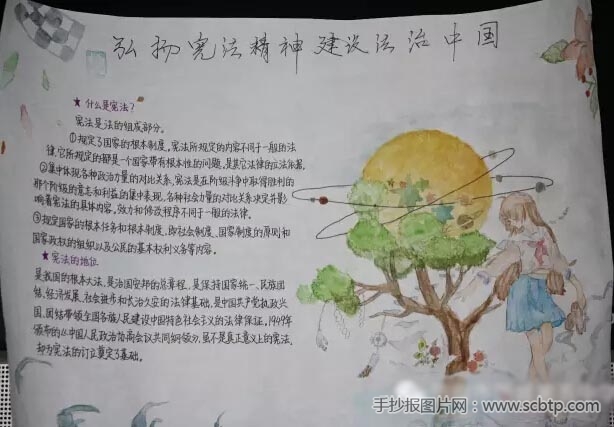 弘扬宪法精神 建设法治中国
★ 什么是宪法？
宪法是法的组成部分。
①规定了国家的根本制度,宪法所规定的内容不同于一般的法
律,它所规定的都是一个国家带有根本性的问题,是其它法律的立法依据。
②集中体现各种政治力量的对比关系,宪法是在阶级斗争中取得胜利的
那个阶级的意志和利益的集中表现,各种社会力量的对比关系决定并影
响着宪法的具体内容,效力和修改程序不同于一般的法律。
③规定国家的根本任务和根本制度,即社会制度、国家制度的原则和
国家政权的组织以及公民的基本权利义务等内容。
★宪法的地位
是我国的根本大法,是治国安邦的总章程,是保持国家统一、民族团
结、经济发展、社会进步和长治久安的法律基础,是中国共产党执政兴
国、团结带领全国各族人民建设中国特色社会主义的法律保证,1949年
颁布的《中国人民政治协商会议共同纲领》,虽不是真正意义上的宪法,
却为宪法的订立奠定了基础。
手抄报图片网:www.scbtp.com